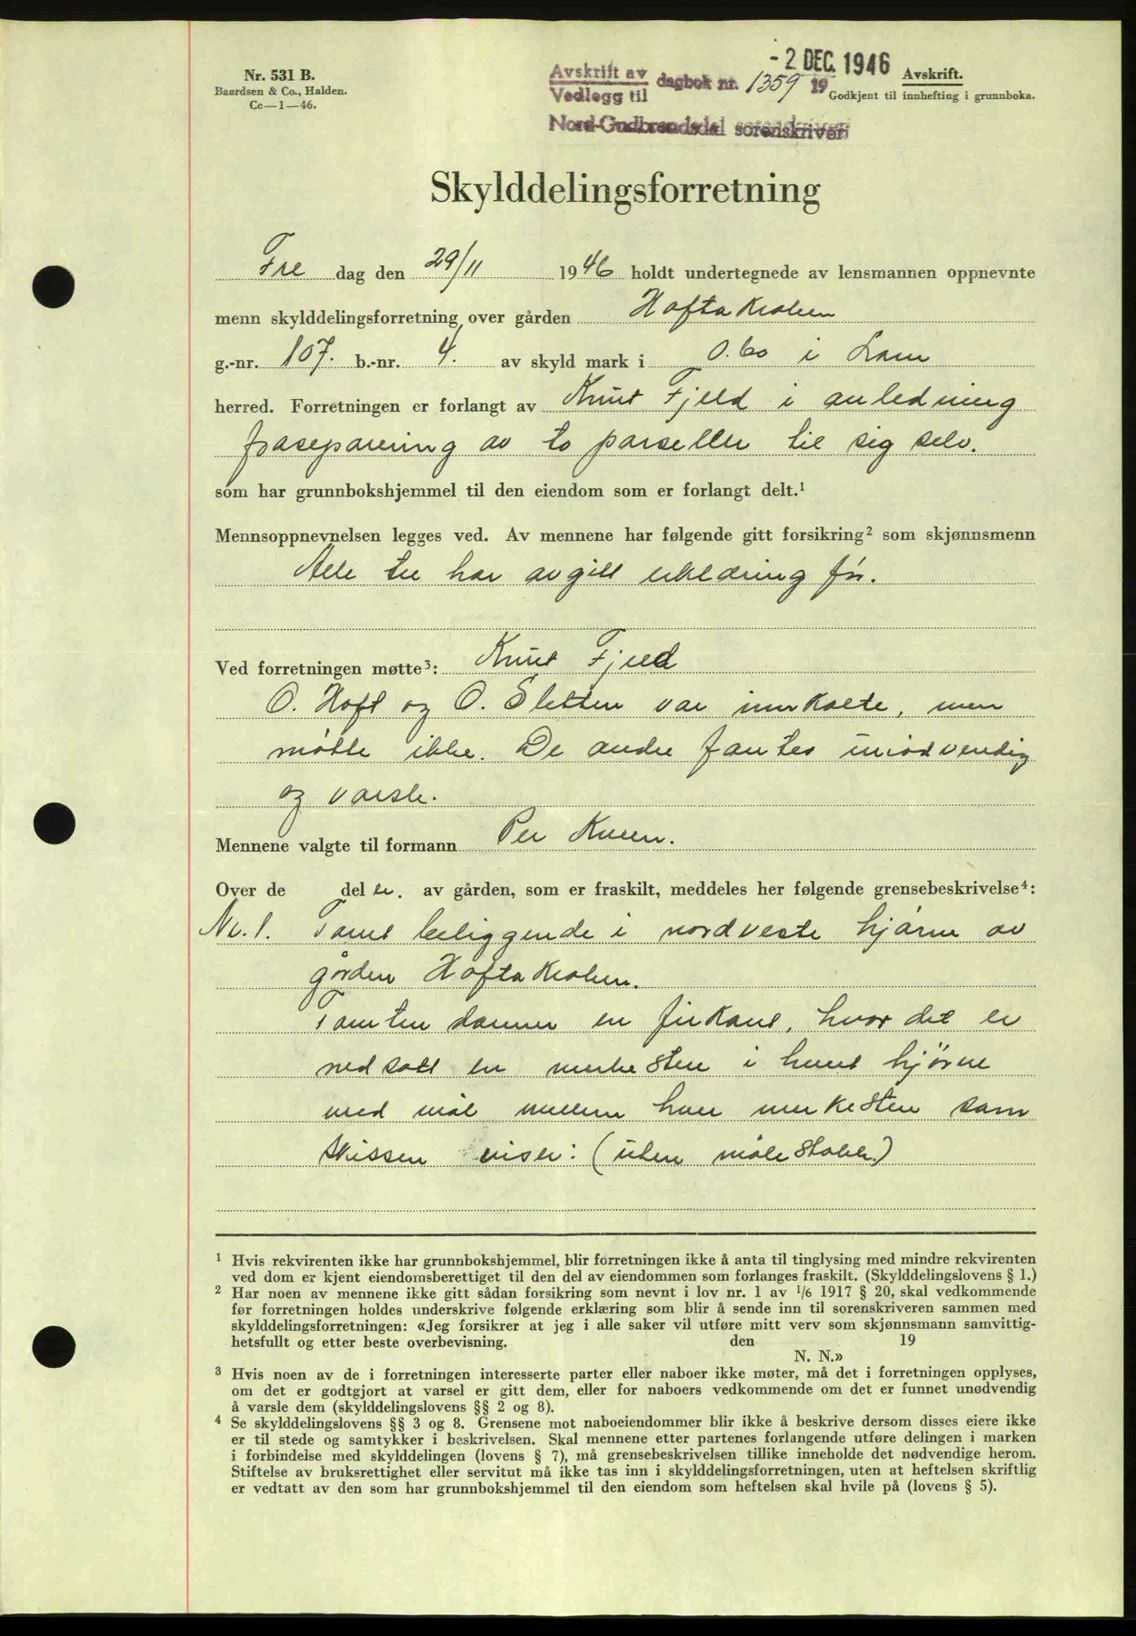 Nr. 531 B.
Baardsen & Co., Halden.
Cc—1—46.
-2 DEC. 1946
Avskrift av
Vedlegg til
dagbok nr. 1359 19
Avskrift.
Godkjent til innhefting i grunnboka.
Nord-Gudbrandsdal sorenskriveri
Skylddelingsforretning
Fre dag den 29/11 1946 holdt undertegnede av lensmannen oppnevnte
menn skylddelingsforretning over gården Hoftakrohen
g.-nr. 107. b.-nr. 4. av skyld mark i 0.60 i Lom
herred. Forretningen er forlangt av Knut Fjeld i anledning
fraseparering av to parseller til sig selv.
som har grunnbokshjemmel til den eiendom som er forlangt delt.¹
Mennsoppnevnelsen legges ved. Av mennene har følgende gitt forsikring² som skjønnsmenn
Alle tre har avgitt erklæring før.
Ved forretningen møtte³: Knut Fjeld
O. Hoft og O. Sletten var innkalte, men
møtte ikke. De andre fantes unødvendig
og varsle.
Mennene valgte til formann Per Kveen.
Over de del er. av gården, som er fraskilt, meddeles her følgende grensebeskrivelse⁴:
Nr. 1. Tomt beliggende i nordveste hjørne av
gården Hoftakrohen.
Tomten danner en firkant, hvor det er
nedsatt en merkesten i hvert hjørne
med mål mellem hver merkesten som
skissen viser: (uten målestokk.)
¹ Hvis rekvirenten ikke har grunnbokshjemmel, blir forretningen ikke å anta til tinglysing med mindre rekvirenten
ved dom er kjent eiendomsberettiget til den del av eiendommen som forlanges fraskilt. (Skylddelingslovens § 1.)
² Har noen av mennene ikke gitt sådan forsikring som nevnt i lov nr. 1 av 1/6 1917 § 20, skal vedkommende
før forretningen holdes underskrive følgende erklæring som blir å sende inn til sorenskriveren sammen med
skylddelingsforretningen: «Jeg forsikrer at jeg i alle saker vil utføre mitt verv som skjønnsmann samvittig-
hetsfullt og etter beste overbevisning. den 19
N. N.»
³ Hvis noen av de i forretningen interesserte parter eller naboer ikke møter, må det i forretningen opplyses,
om det er godtgjort at varsel er gitt dem, eller for naboers vedkommende om det er funnet unødvendig
å varsle dem (skylddelingslovens §§ 2 og 8).
⁴ Se skylddelingslovens §§ 3 og 8. Grensene mot naboeiendommer blir ikke å beskrive dersom disses eiere ikke
er til stede og samtykker i beskrivelsen. Skal mennene etter partenes forlangende utføre delingen i marken
i forbindelse med skylddelingen (lovens § 7), må grensebeskrivelsen tillike inneholde det nødvendige herom.
Stiftelse av bruksrettighet eller servitut må ikke tas inn i skylddelingsforretningen, uten at heftelsen skriftlig
er vedtatt av den som har grunnbokshjemmel til den eiendom som heftelsen skal hvile på (lovens § 5).